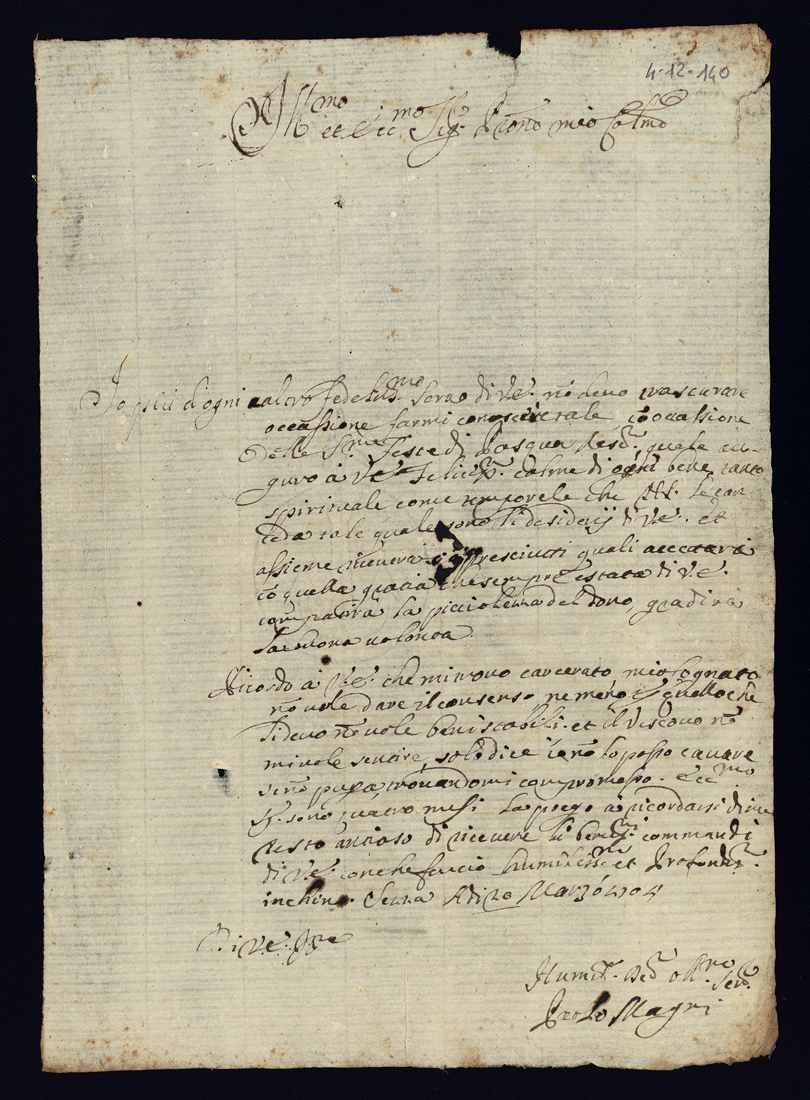 4-12-140
Ill.mo et Ecc.mo Sig.r P.rone mio Col.mo
Io più d'ogni altro fedeliss.mo servo di V.E. nõ devo trascurare
occassione farmi conoscere tale, cõ occassione
delle S.me Feste di Pasqua Resõ. quale au-
guro à V.E. felicis. colme di ogni bene tanto
spirituale come temporele che Ill. le con-
ceda tale quale sono li desiderij di V.E. et
assieme riceverà presciutti quali accetarà
cõ quella gracia che sempre è stata di V.E.
compatirà la picciolezza del dono gradirà
la buona volontà
Ricordo à V.E. che mi trovo carcerato, mio Cognato
nõ vole dare il consenso ne meno quello che
li devo nõ vole beni stabili. et il Vescovo nõ
mi vole sentire, solo dice io nõ lo posso cavare
se nõ paga trovandomi compromesso. Ecc.mo
S. sono quatro mesi la prego à ricordarsi di me
resto ancioso di ricevere li commandi
di V.E. con che faccio humilis.me et Profondis.
inchino Adi 20 Marzo
Di V.E. Ill.re
Humil. Dev. Obl. Ser.
Paolo Magri